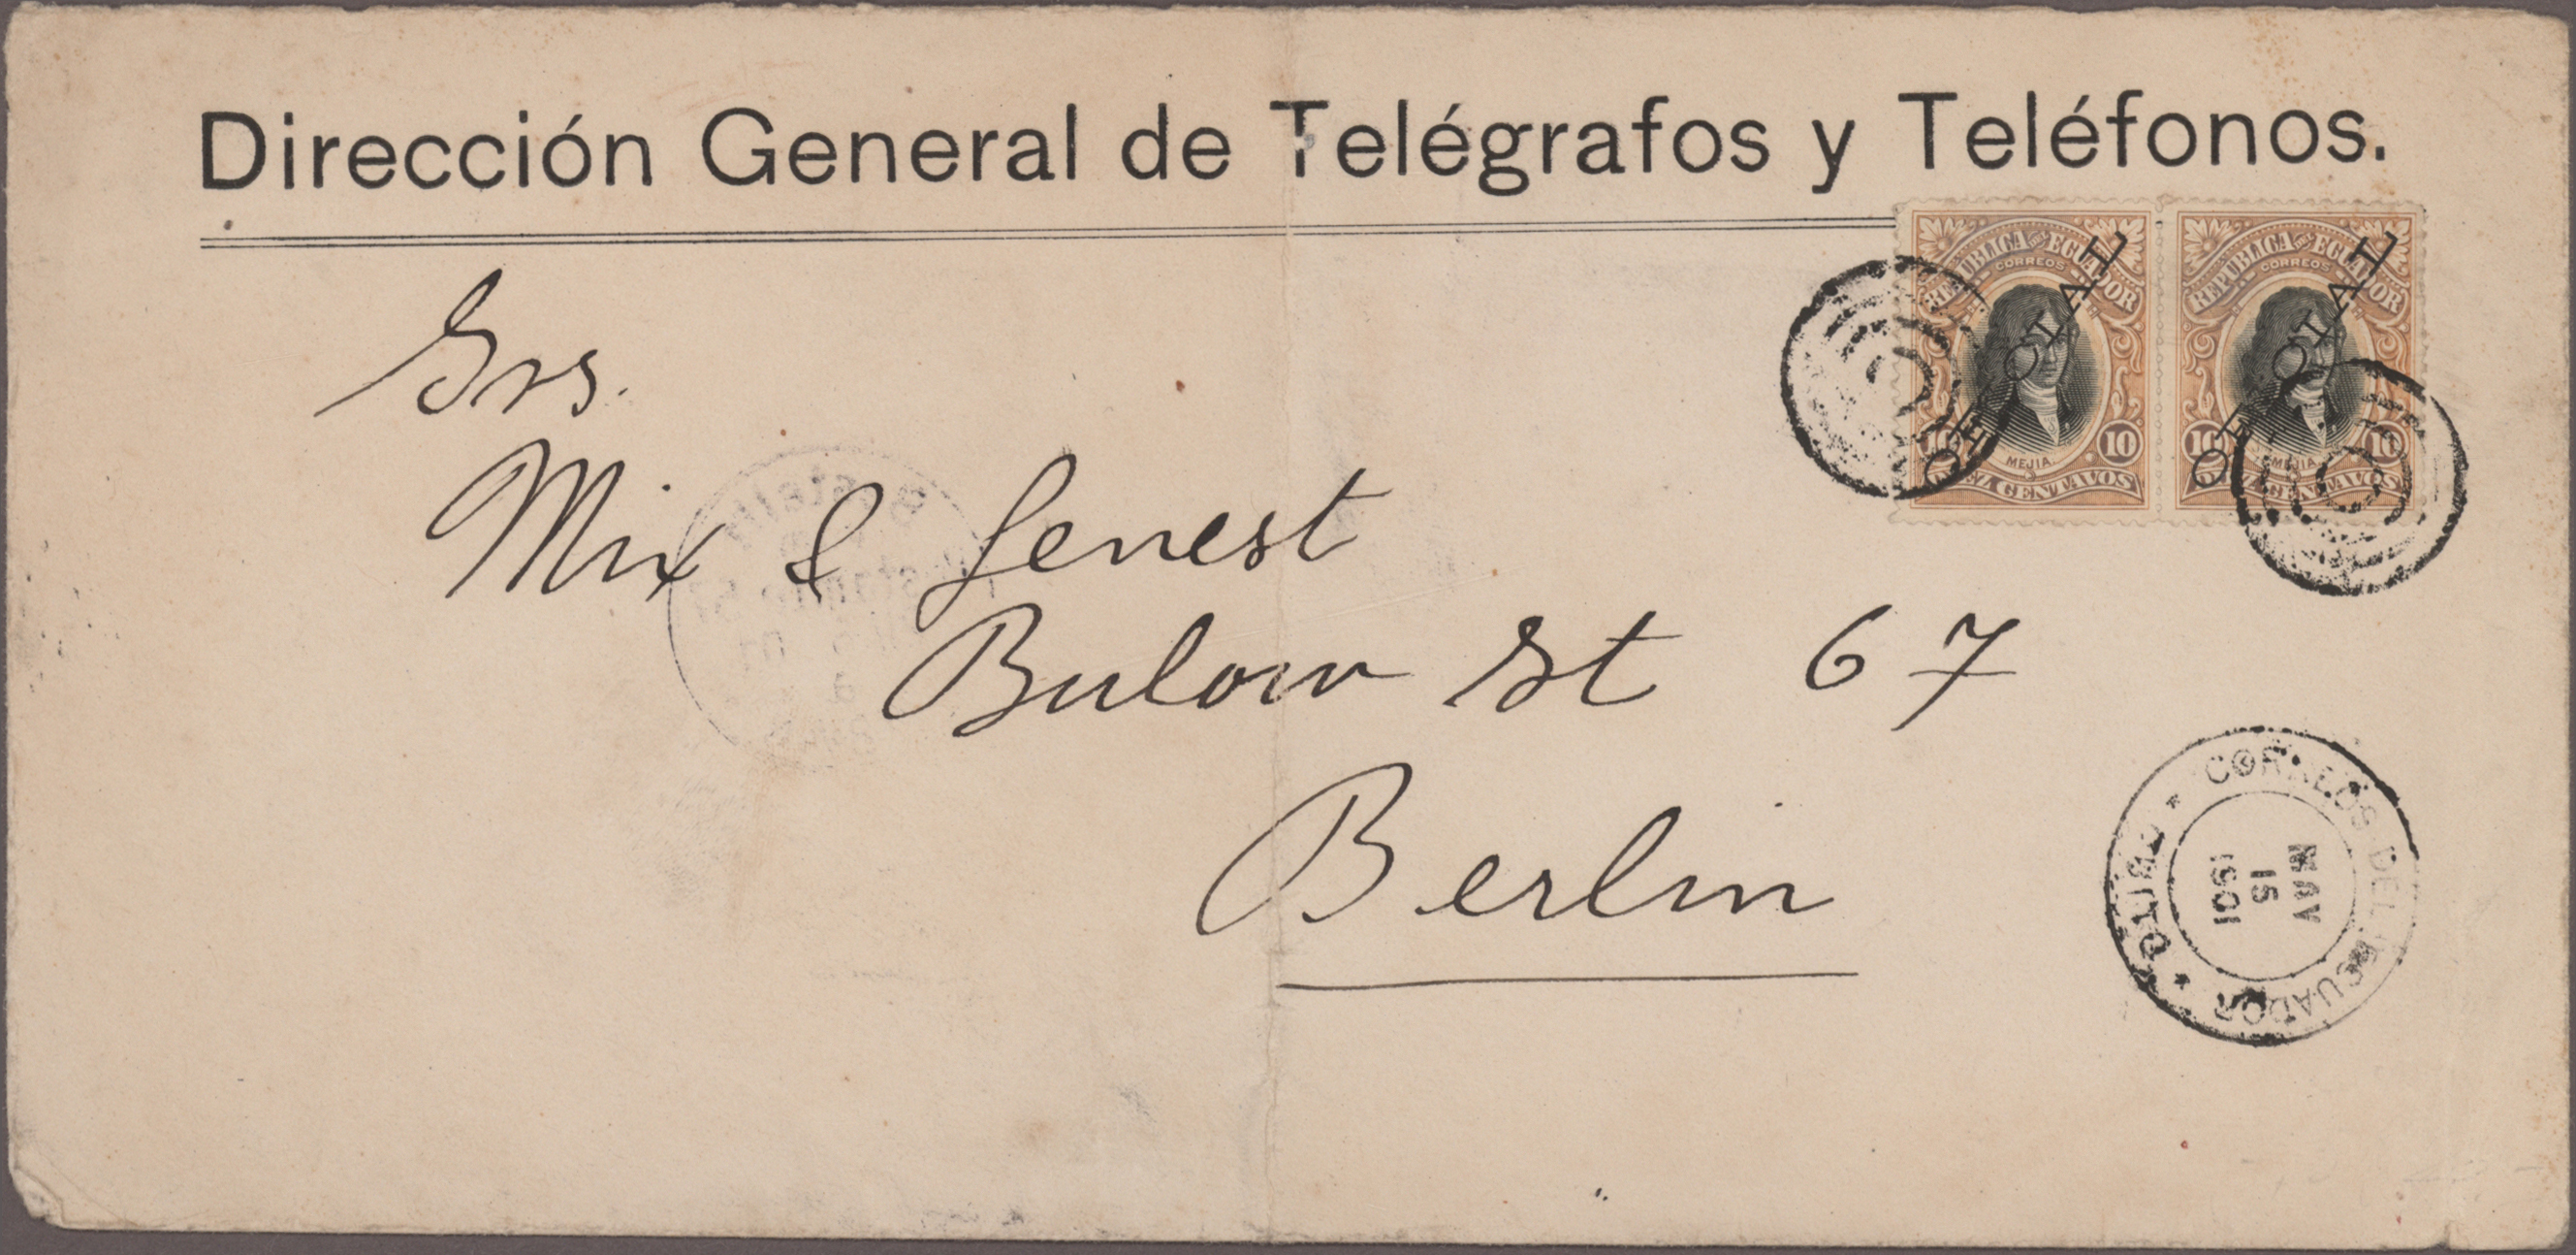 Dirección General de Telégrafos y Teléfonos.
REPUBLICA DEL ECUADOR
CORREOS
OFICIAL
10 10
MEJIA
DIEZ CENTAVOS
REPUBLICA DEL ECUADOR
CORREOS
OFICIAL
10 10
MEJIA
DIEZ CENTAVOS
Srs.
Mix & Genest
Bulow St 67
Berlin
CORREOS DEL ECUADOR
* QUITO *
MAY
15
1901